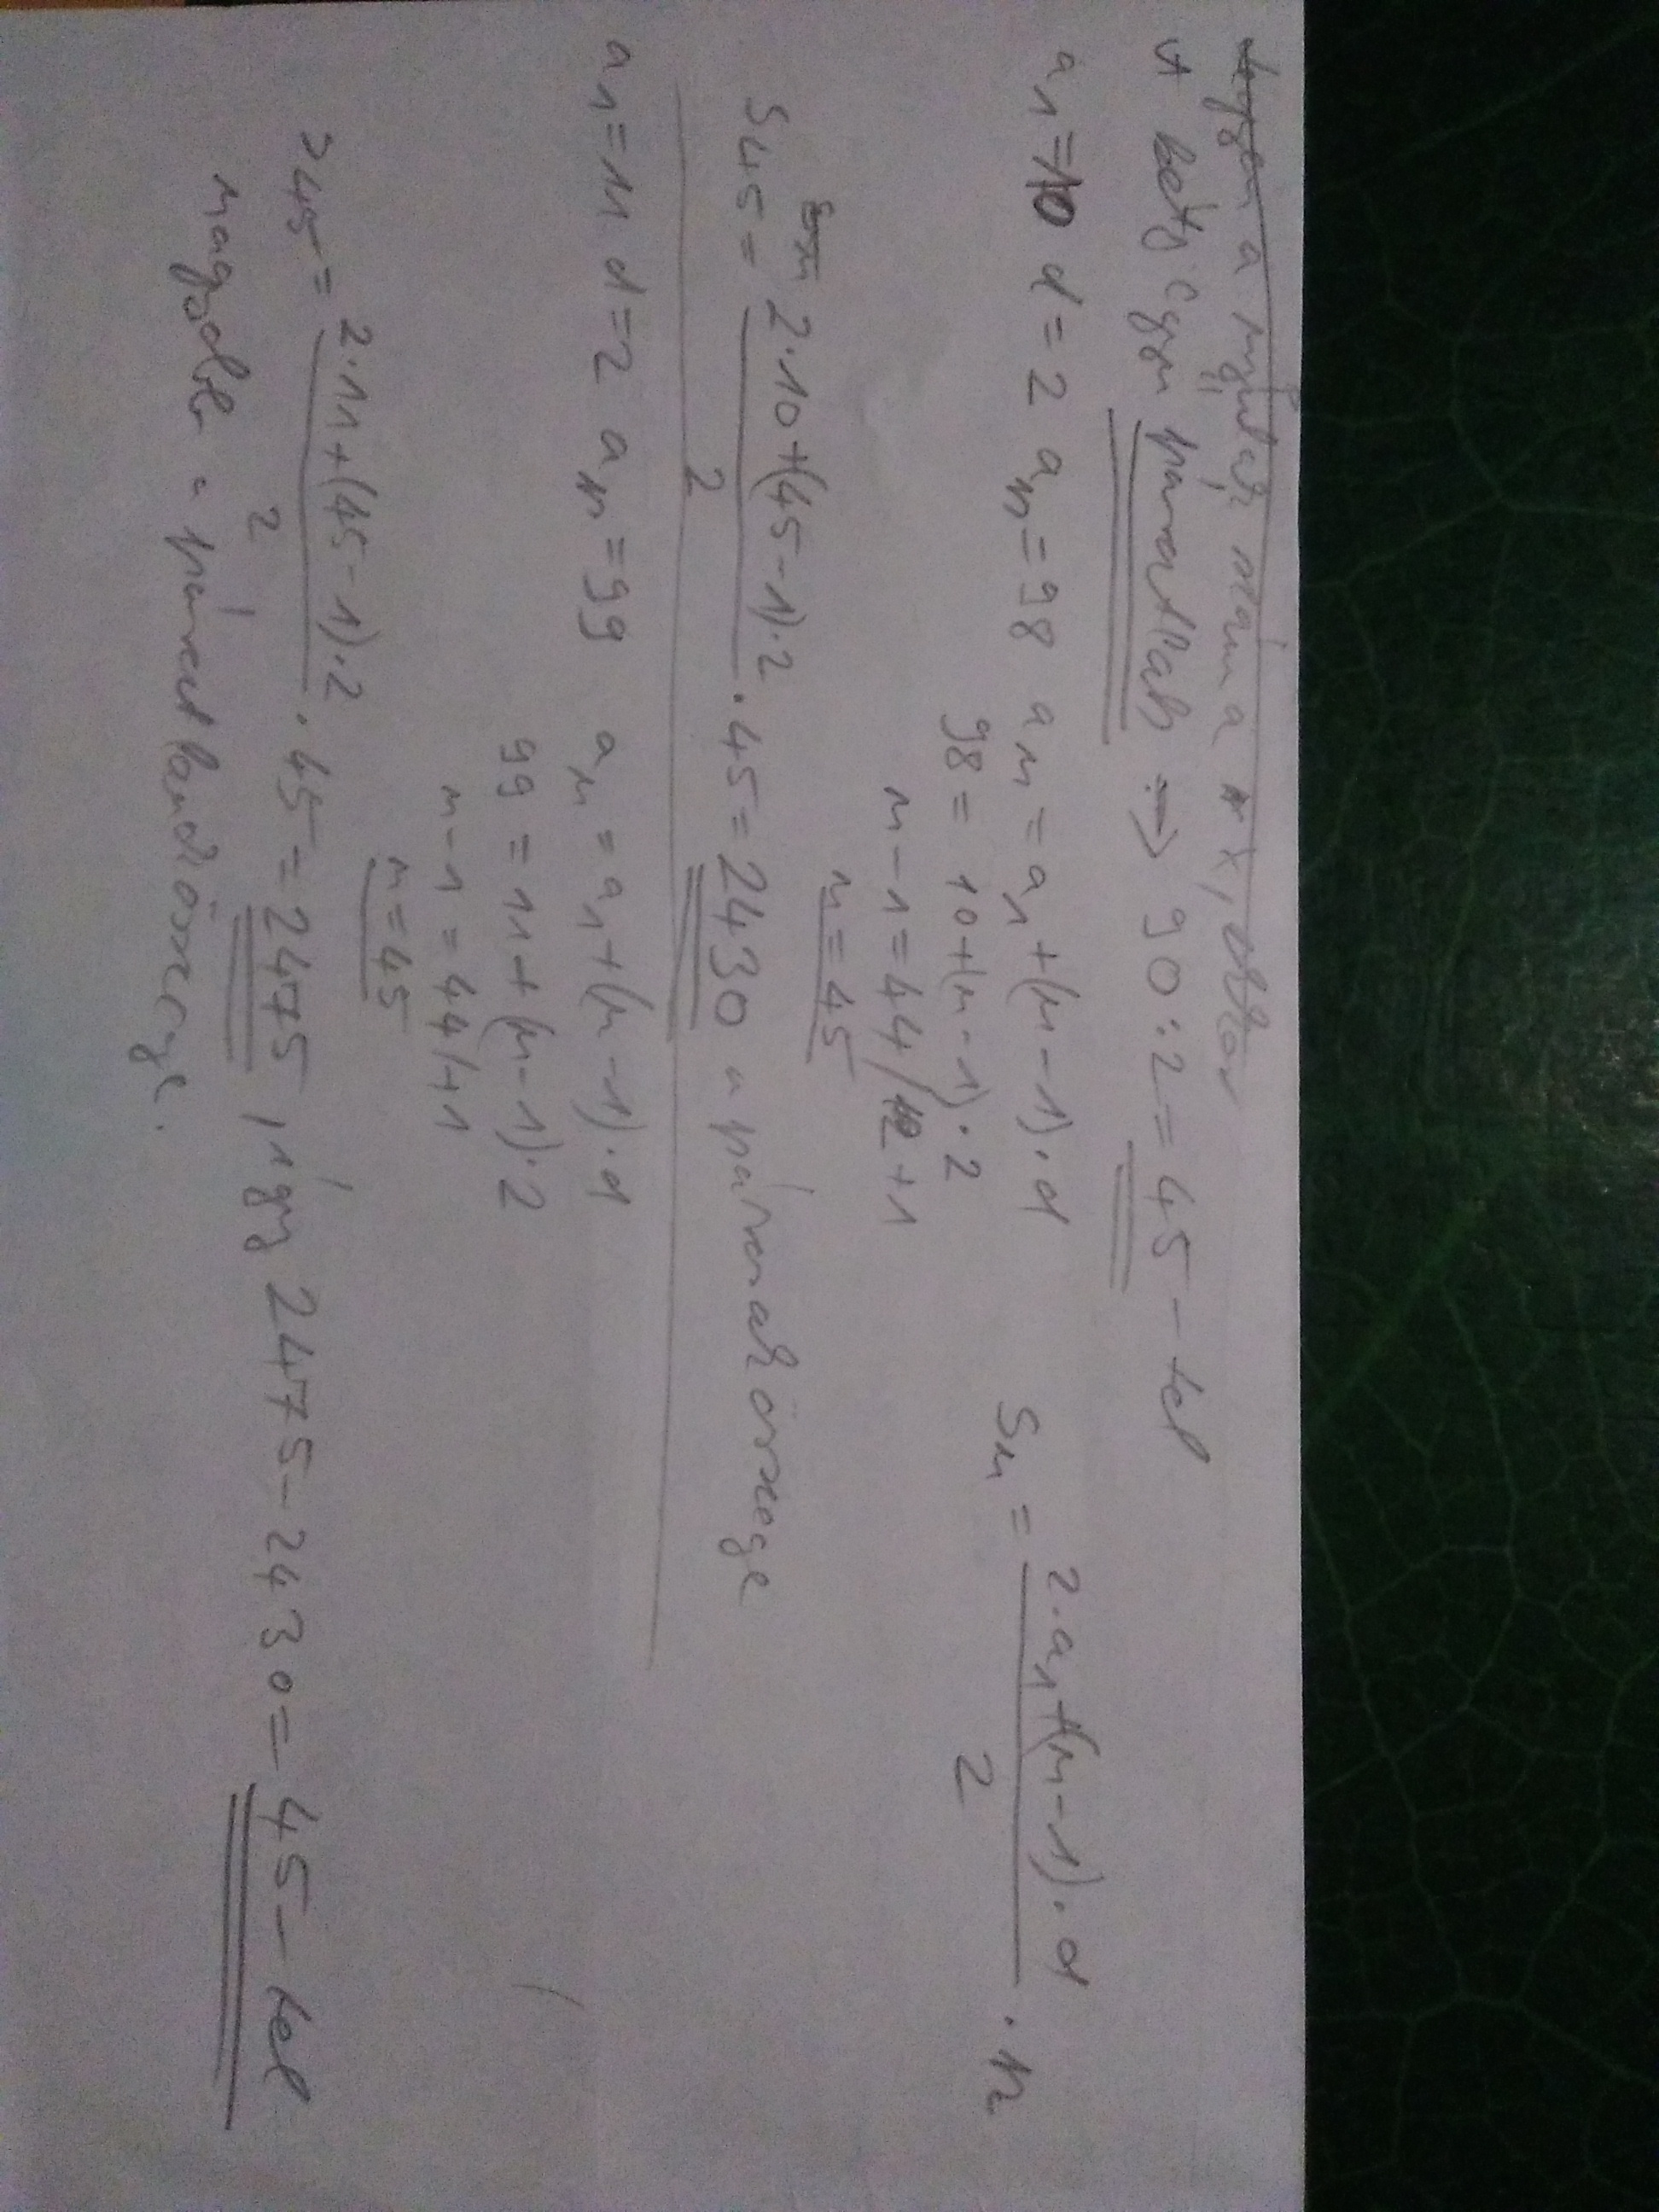 a nyulak száma x, akkor
A kétjegyű páratlan → 90:2=45-tel
a1=10 d=2 an=98 an=a1+(n-1)·d
98=10+(n-1)·2
n-1=44/+1
n=45
Sn = (2·a1+(n-1)·d)/2 · n
S45 = (2·10+(45-1)·2)/2 · 45 = 2430 a párosak összege
a1=11 d=2 an=99 an=a1+(n-1)·d
99=11+(n-1)·2
n-1=44/+1
n=45
S45 = (2·11+(45-1)·2)/2 · 45 = 2475, így 2475-2430=45-tel
nagyobb a páratlanok összege.